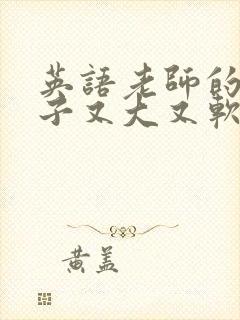 英語老師的
子又大又軟
黃蓋